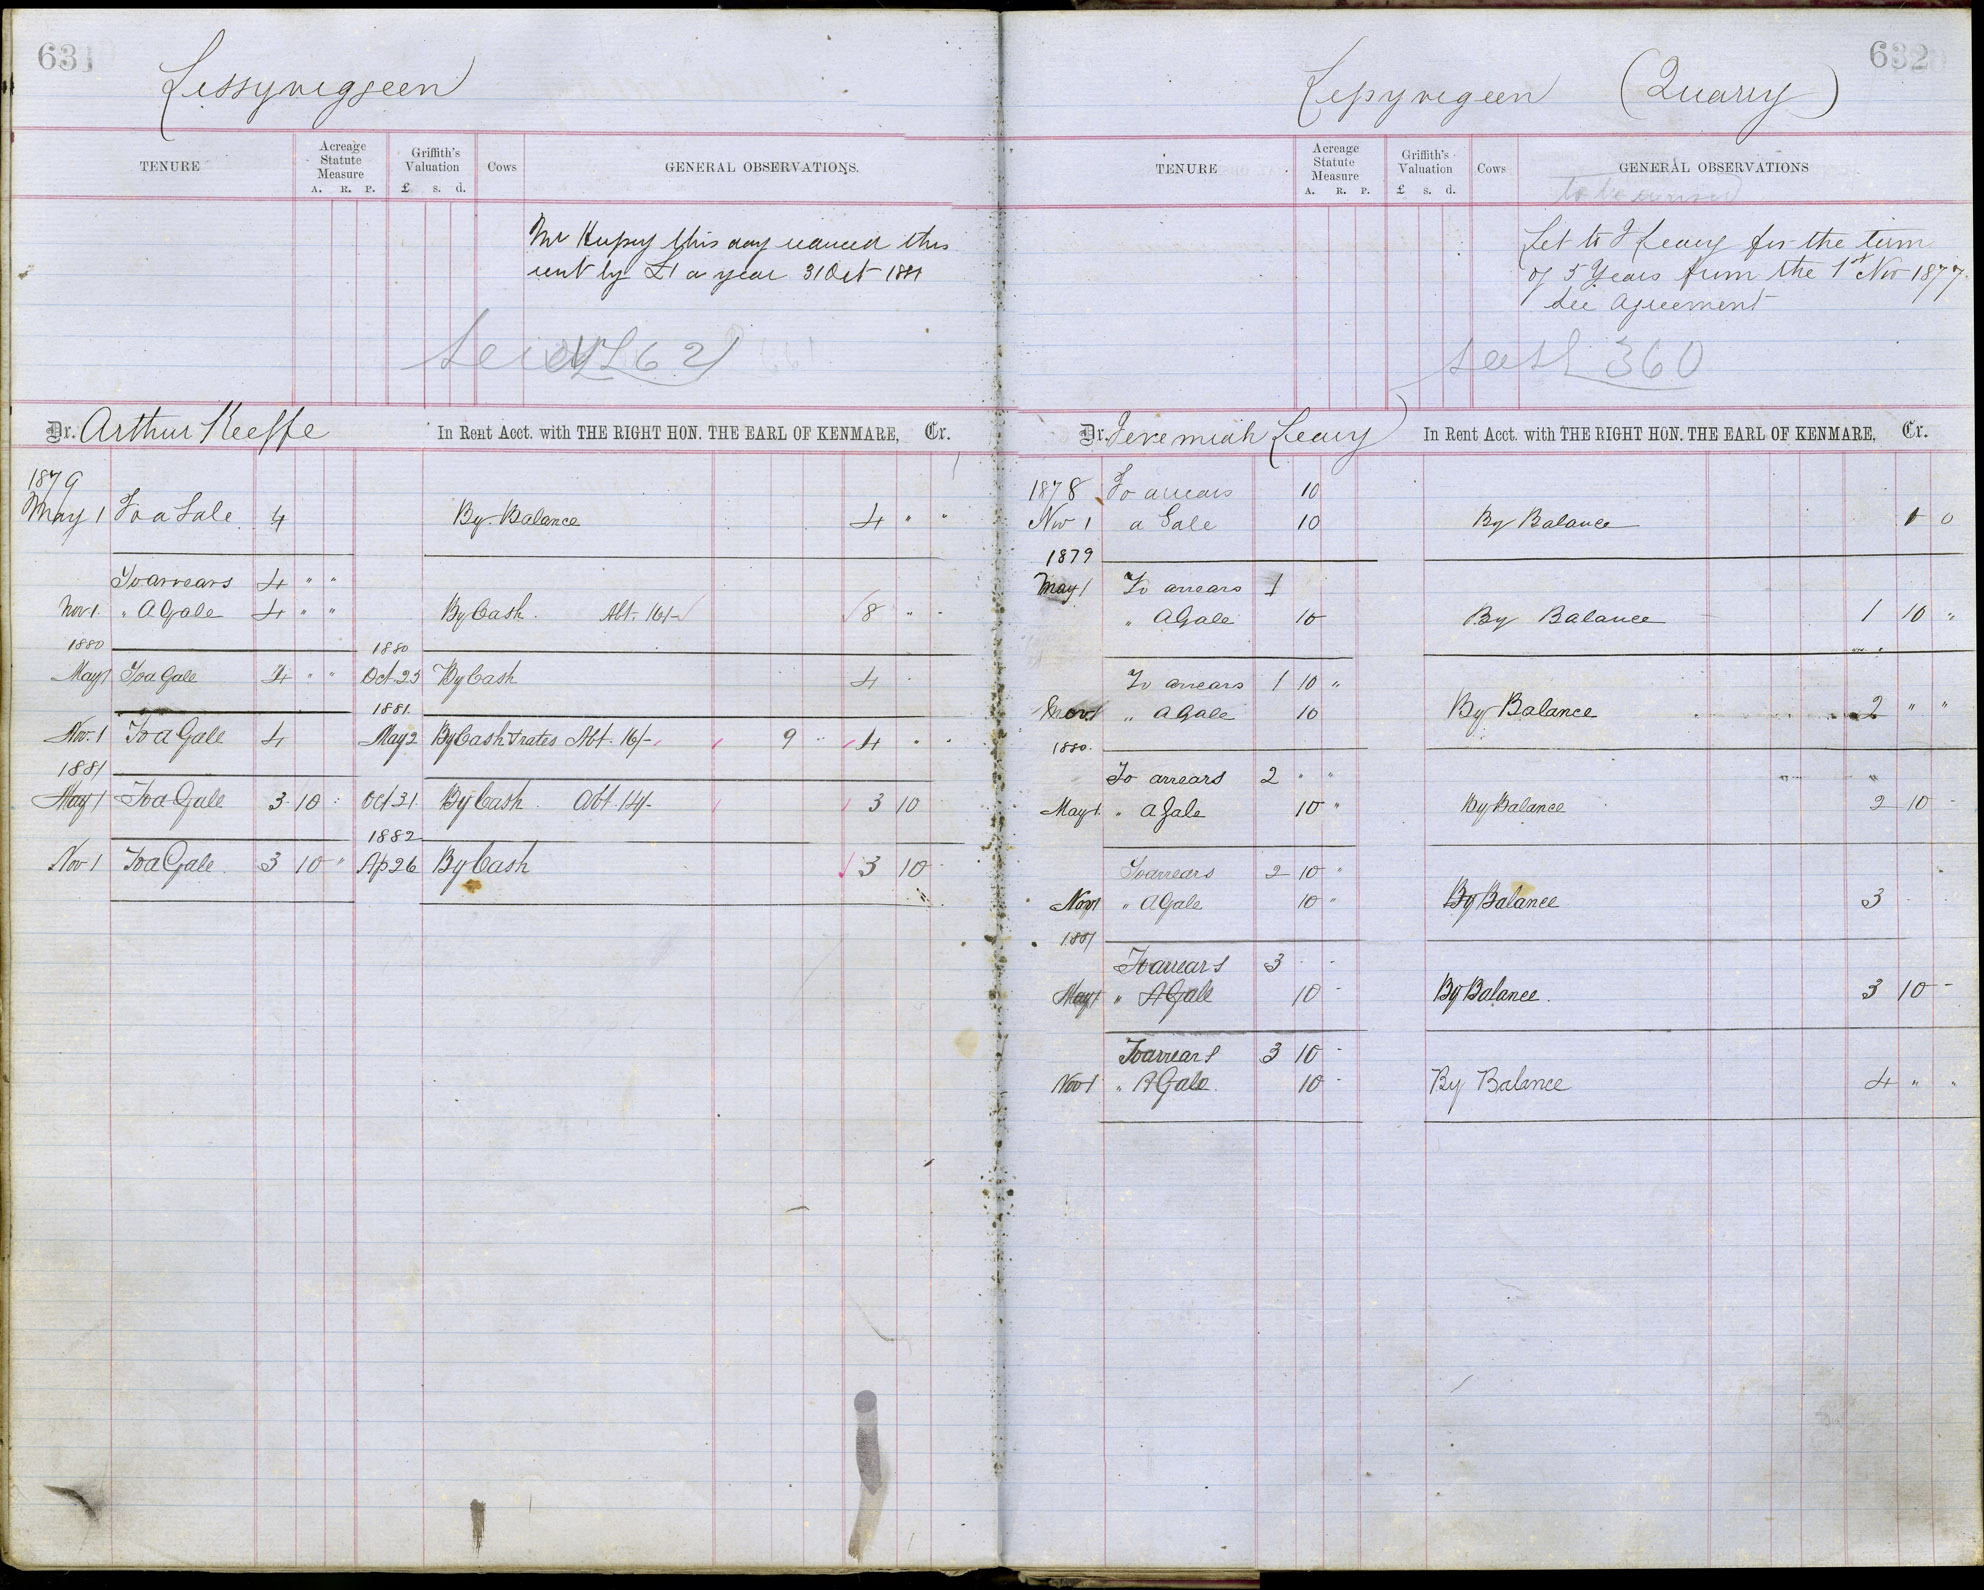 631
Lissyvigeen
TENURE
Acreage Statute Measure
A. R. P.
Griffith's Valuation
£ s. d.
Cows
GENERAL OBSERVATIONS.
Mr Hussey this day reduced this
rent by £1 a year 31 Oct 1881
Dr. Arthur Keeffe In Rent Acct. with THE RIGHT HON. THE EARL OF KENMARE, Cr.
1879
May 1 To a Gale 4 By Balance 4 " "
To arrears 4 " "
Nov 1. " A Gale 4 " " By Cash. Abt. 16/- 8 " "
1880 1880
May 1 To a Gale 4 " " Oct. 25 By Cash 4
1881.
Nov. 1 To a Gale 4 May 2 By Cash & rates Abt. 16/- 9 " 4 " "
1881
May 1 To a Gale 3 10 Oct 31 By Cash. Abt. 14/- 3 10
1882
Nov 1 To a Gale. 3 10 " Ap 26 By Cash 3 10
632
Lissyvigeen (Quarry)
TENURE
Acreage Statute Measure
A. R. P.
Griffith's Valuation
£ s. d.
Cows
GENERAL OBSERVATIONS
Let to J Leary for the term
of 5 Years from the 1st Nov 1877.
See Agreement
360
Dr. Jeremiah Leary In Rent Acct. with THE RIGHT HON. THE EARL OF KENMARE, Cr.
1878 To arrears 10
Nov 1 a Gale 10 By Balance 1 0
1879
May 1 To arrears 1
" A Gale 10 By Balance 1 10 "
To arrears 1 10 "
Nov. 1 " A Gale 10 By Balance 2 " "
1880.
To arrears 2 " "
May 1. " A Gale 10 " By Balance 2 10 -
To arrears 2 10 "
Nov 1 " A Gale 10 " By Balance 3
1881
To arrears 3 - -
May 1 " A Gale 10 - By Balance. 3 10 -
To arrears 3 10 -
Nov 1 " A Gale. 10 - By Balance 4 " "